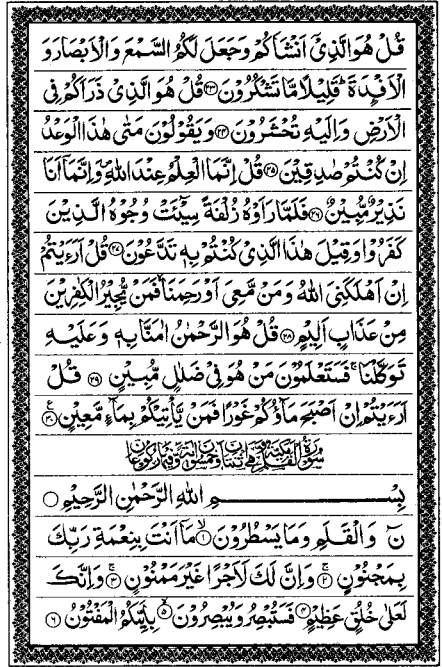 قُلْ هُوَ الَّذِيْۤ اَنْشَاَكُمْ وَجَعَلَ لَكُمُ السَّمْعَ وَالْاَبْصَارَ وَ
الْاَفْـِٕدَةَ ؕ قَلِيْلًا مَّا تَشْكُرُوْنَ ﴿۲۳﴾ قُلْ هُوَ الَّذِيْ ذَرَاَكُمْ فِي
الْاَرْضِ وَاِلَيْهِ تُحْشَرُوْنَ ﴿۲۴﴾ وَيَقُوْلُوْنَ مَتٰى هٰذَا الْوَعْدُ
اِنْ كُنْتُمْ صٰدِقِيْنَ ﴿۲۵﴾ قُلْ اِنَّمَا الْعِلْمُ عِنْدَ اللّٰهِ ۪ وَاِنَّمَاۤ اَنَا
نَذِيْرٌ مُّبِيْنٌ ﴿۲۶﴾ فَلَمَّا رَاَوْهُ زُلْفَةً سِيْٓـَٔتْ وُجُوْهُ الَّذِيْنَ
كَفَرُوْا وَقِيْلَ هٰذَا الَّذِيْ كُنْتُمْ بِهٖ تَدَّعُوْنَ ﴿۲۷﴾ قُلْ اَرَءَيْتُمْ
اِنْ اَهْلَكَنِيَ اللّٰهُ وَمَنْ مَّعِيَ اَوْ رَحِمَنَا ۙ فَمَنْ يُّجِيْرُ الْكٰفِرِيْنَ
مِنْ عَذَابٍ اَلِيْمٍ ﴿۲۸﴾ قُلْ هُوَ الرَّحْمٰنُ اٰمَنَّا بِهٖ وَعَلَيْهِ
تَوَكَّلْنَا ۚ فَسَتَعْلَمُوْنَ مَنْ هُوَ فِيْ ضَلٰلٍ مُّبِيْنٍ ﴿۲۹﴾ قُلْ
اَرَءَيْتُمْ اِنْ اَصْبَحَ مَآؤُكُمْ غَوْرًا فَمَنْ يَّاْتِيْكُمْ بِمَآءٍ مَّعِيْنٍ ﴿۳۰﴾
بِسْمِ اللّٰهِ الرَّحْمٰنِ الرَّحِيْمِ ○
نٓ وَالْقَلَمِ وَمَا يَسْطُرُوْنَ ﴿۱﴾ ۙ مَاۤ اَنْتَ بِنِعْمَةِ رَبِّكَ
بِمَجْنُوْنٍ ﴿۲﴾ ۚ وَاِنَّ لَكَ لَاَجْرًا غَيْرَ مَمْنُوْنٍ ﴿۳﴾ ۚ وَاِنَّكَ
لَعَلٰى خُلُقٍ عَظِيْمٍ ﴿۴﴾ فَسَتُبْصِرُ وَيُبْصِرُوْنَ ﴿۵﴾ ۙ بِاَيِّٮكُمُ الْمَفْتُوْنُ ﴿۶﴾